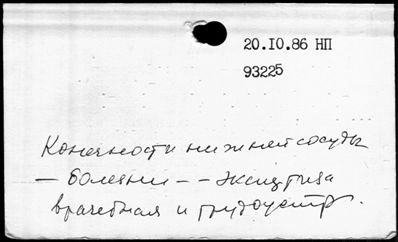 20.10.86 НП
93225
Конечности нижней сосуды
— болезни — – экспертиза
врачебная и трудоустр.